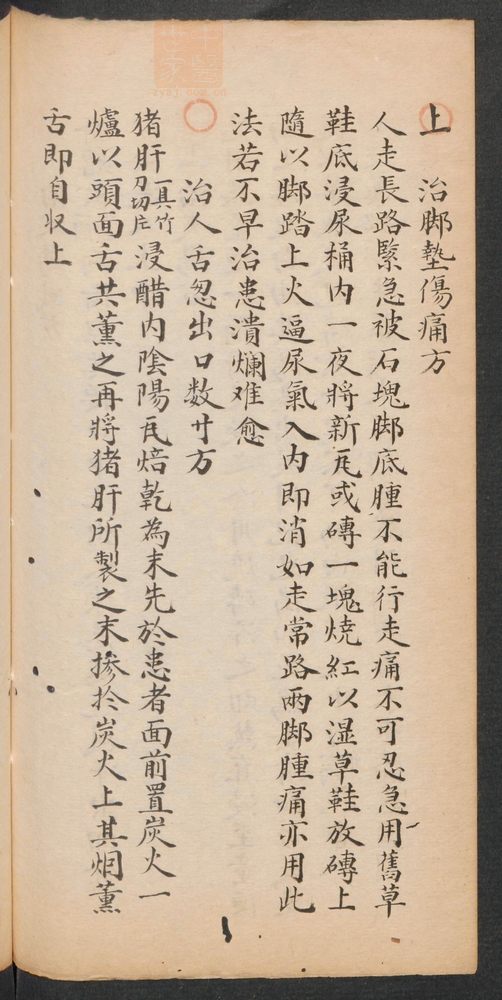 上　治脚墊傷痛方
人走長路緊急被石塊脚底腫不能行走痛不可忍急用舊草
鞋底浸尿桶内一夜將新瓦或磚一塊燒紅以湿草鞋放磚上
隨以脚踏上火逼尿氣入内即消如走常路兩脚腫痛亦用此
法若不早治患潰爛难愈
治人舌忽出口数寸方
猪肝一具竹刀切片浸醋内陰陽瓦焙乾為末先於患者面前置炭火一
爐以頭面舌共薰之再將猪肝所製之末摻扵炭火上其烟薰
舌即自収上